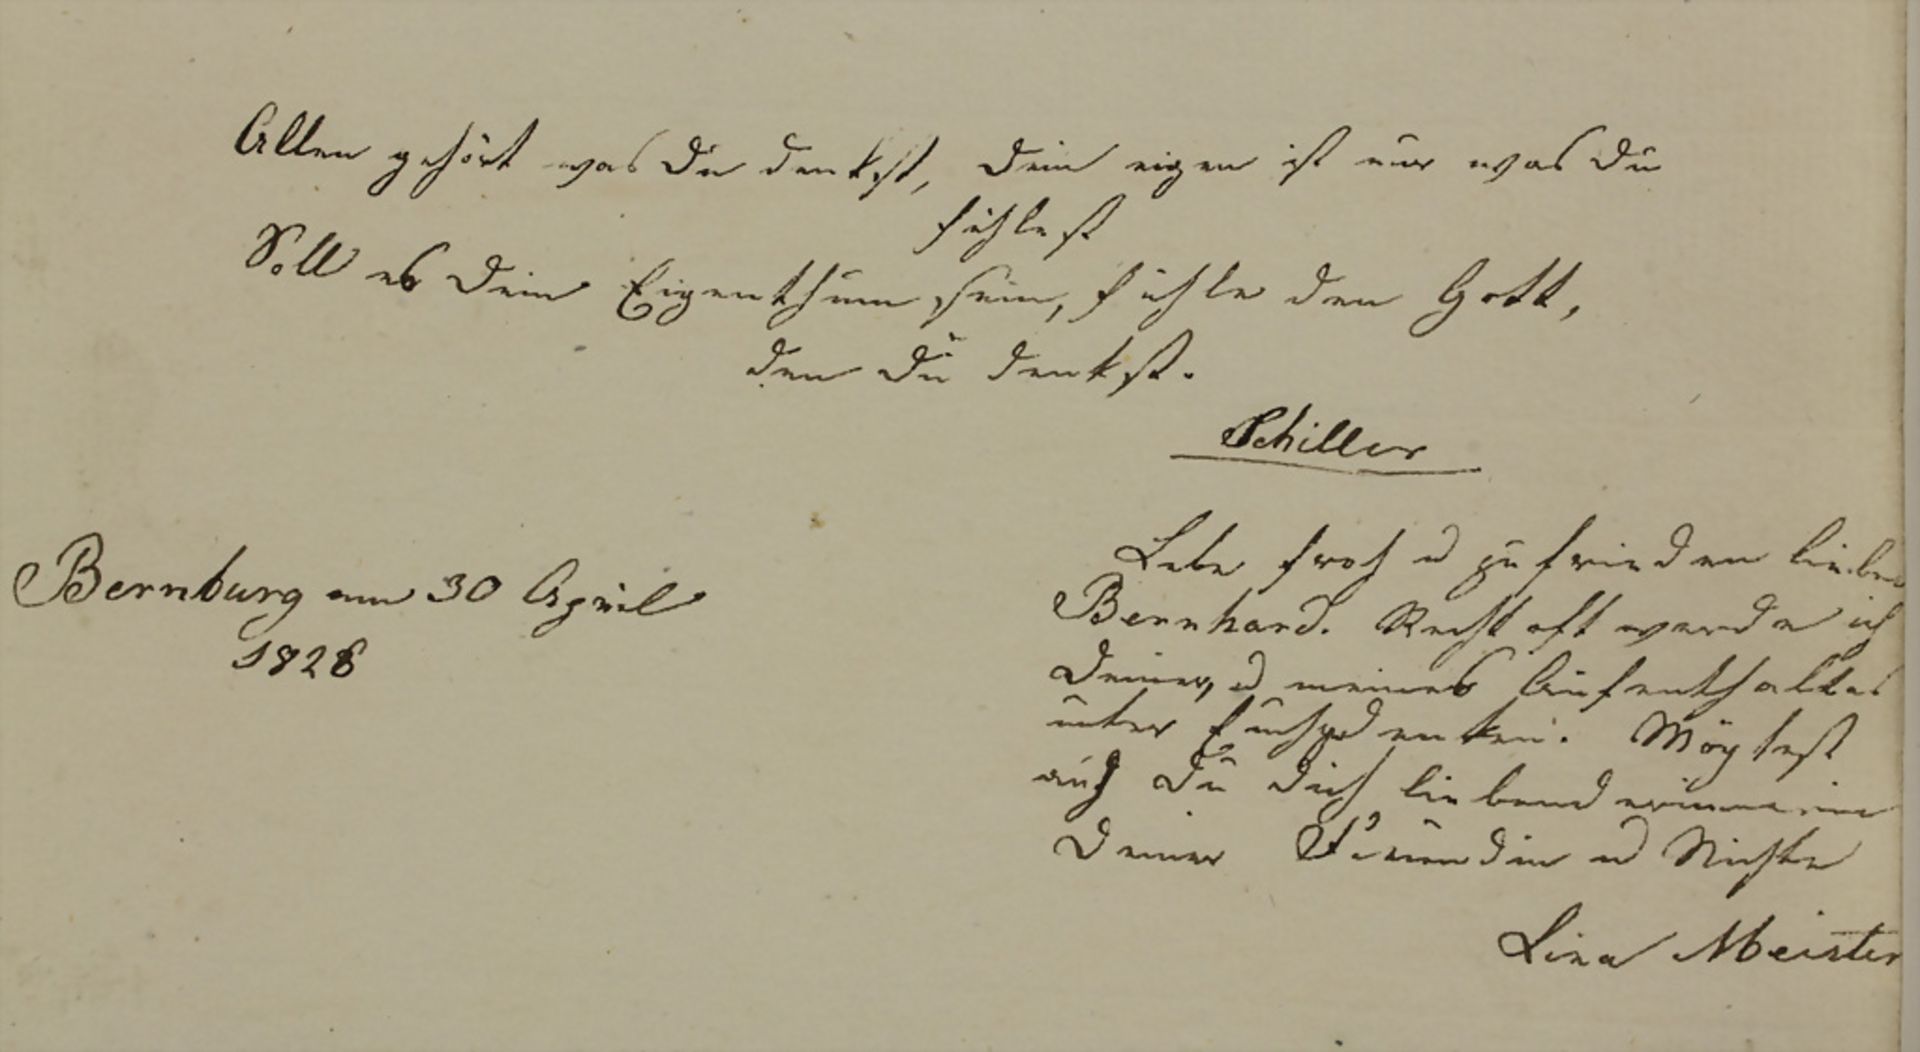 Allen gehört was Du denkst, Dein eigen ist nur was Du
fühlest
Soll es Dein Eigenthum sein, fühle den Gott,
den Du denkst.
Schiller
Bernburg am 30 April
1828
Lebe froh u zufrieden lieber
Bernhard. Recht oft werde ich
Deiner, u meines Aufenthaltes
unter Euch gedenken. Mögtest
auch Du Dich liebend erinnern
Deiner Freundin u Nichte
Lina Meister